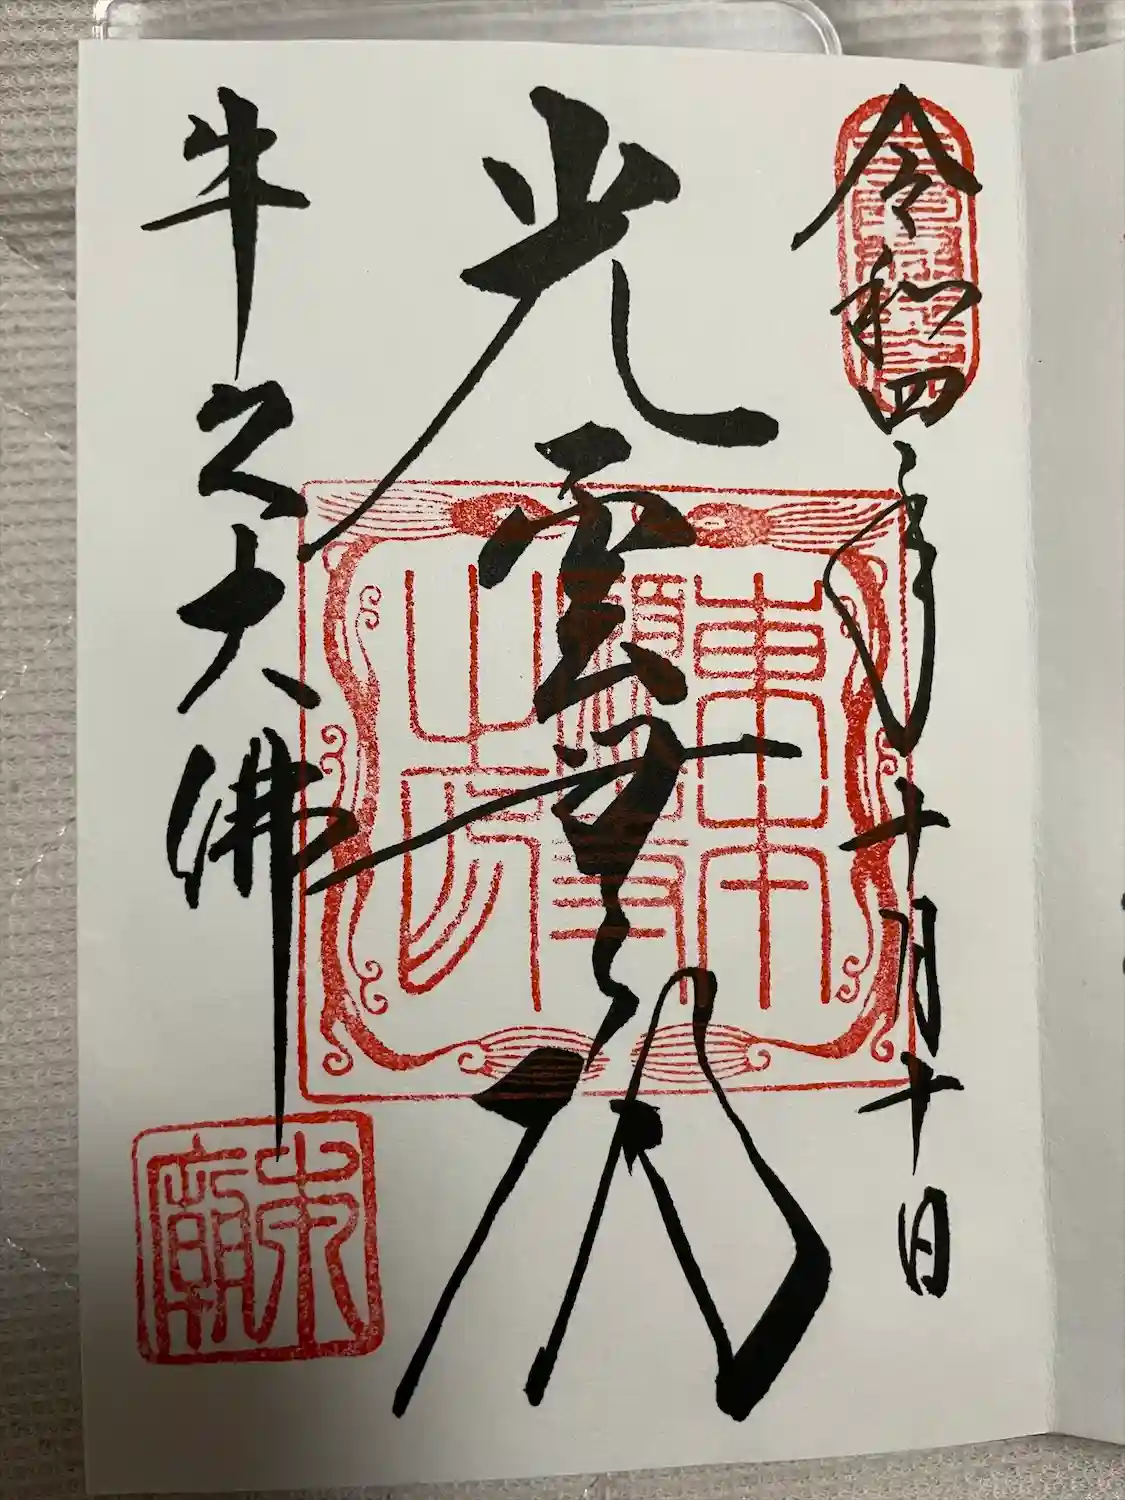 令和四年十月十日
光雲無碍
牛久大佛
東本
願寺
之印